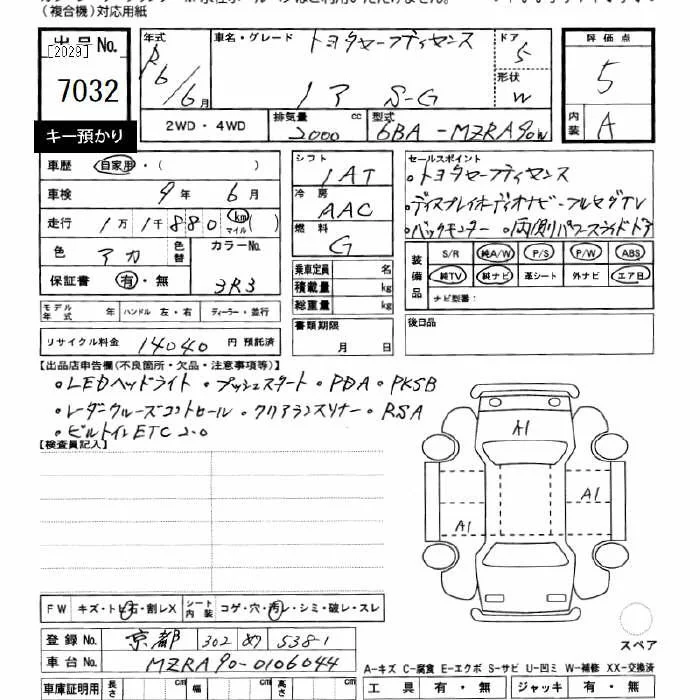 （複合機）対応用紙
出品No.
[2029]
7032
キー預かり
年式 R6/6月
車名・グレード トヨタセーフティセンス
ドア 5
形状 W
評価点 5
内装 A
2WD・4WD
排気量 2000 cc
型式 6BA-MZRA90W
車歴 自家用・( )
車検 9年 6月
走行 1万1千880 km マイル ( )
色 アカ 色替 カラーNo. 3R3
保証書 有・無
シフト IAT
冷房 AAC
燃料 G
乗車定員 名
積載量 kg
総重量 kg
セールスポイント
・トヨタセーフティセンス
・ディスプレイオーディオナビ・フルセグTV
・バックモニター ・両側パワースライドドア
装備品 S/R 純A/W P/S P/W ABS
純TV 純ナビ 革シート 外ナビ エア日
ナビ型番：
モデル年式 年 ハンドル 左・右 ディーラー・並行
リサイクル料金 14040 円 預託済
書類期限 月 日
後日品
【出品店申告欄(不良箇所・欠品・注意事項等)】
・LEDヘッドライト ・プッシュスタート ・PDA ・PKSB
・レーダークルーズコントロール ・クリアランスソナー ・RSA
・ビルトインETC2.0
【検査員記入】
A1
A1
A1
FW キズ・トビ石・割レX シート内装 コゲ・穴・汚レ・シミ・破レ・スレ
登録No. 京都 302 め 5381
車台No. MZRA90-0106044
スペア
A-キズ C-腐食 E-エクボ S-サビ U-凹ミ W-補修 XX-交換済
車庫証明用 長さ cm 幅 cm 高さ cm
工具 有・無 ジャッキ 有・無